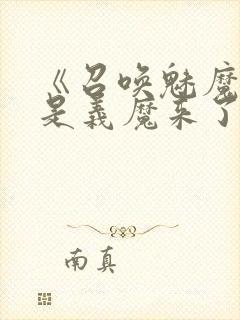 《召唤魅魔
是义魔来了
南真